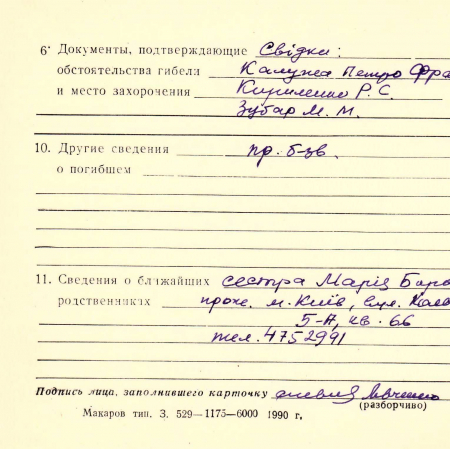 6· Документы, подтверждающие Свідки:
обстоятельства гибели Калужа Петро Фра
и место захорочения Кириленко Р. С.
Зубар М. М.
10. Другие сведения пр. б-зв.
о погибшем
11. Сведения о ближайших сестра Марія Бор
родственниках прож. м. Київ, вул.
5-А, кв. 66
тел. 4752991
Подпись лица, заполнившего карточку
(разборчиво)
Макаров тип. З. 529—1175—6000 1990 г,